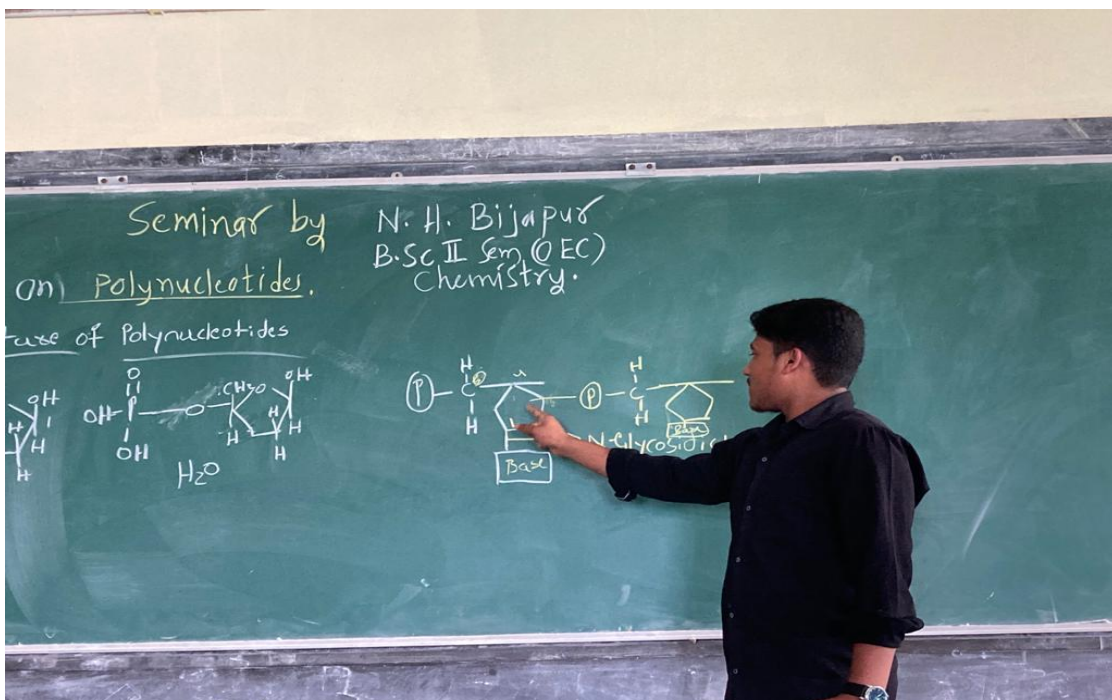 Seminar by
N. H. Bijapur
B.Sc II Sem (OEC)
Chemistry.
on Polynucleotides.
of Polynucleotides
O
OH P O CH2O OH
OH
H H
H2O
OH
H
H
P C P C
H
H
H
H
Base
N-Glycosidic